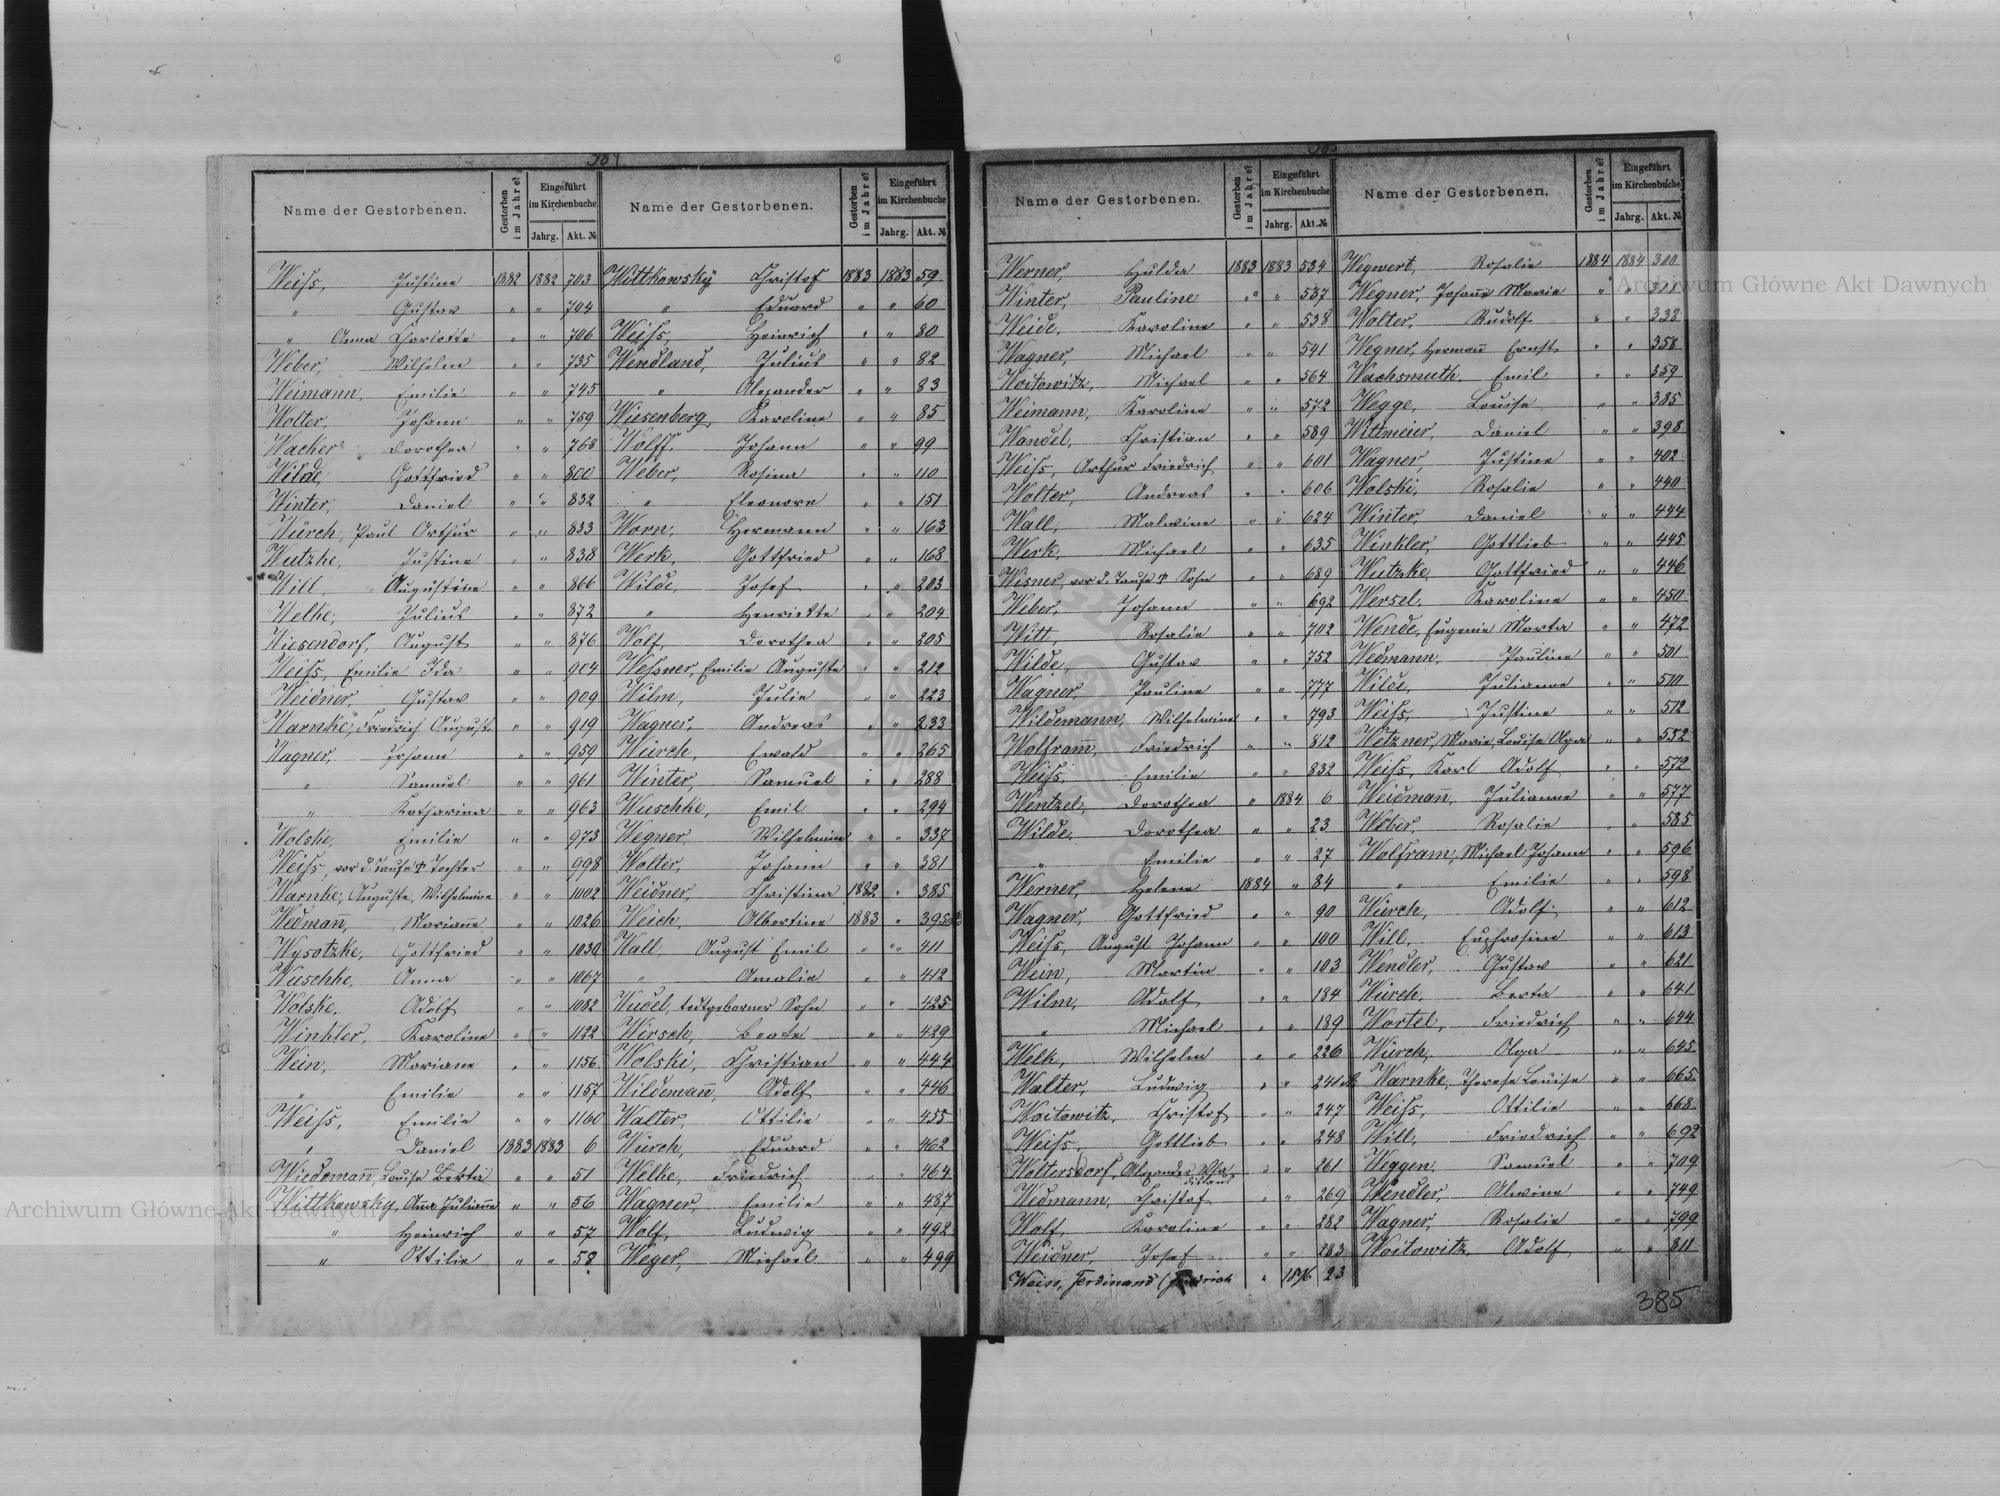 384
Name der Gestorbenen. Gestorben im Jahre? Eingeführt im Kirchenbuche Jahrg. Akt. №
Weiss, Justine 1882 1882 703
" Gustav " " 704
" Anna Charlotte " " 706
Weber, Wilhelm " " 735
Weimann, Emilie " " 745
Wolter, Johann " " 759
Wacker Dorothea " " 768
Wilde, Gottfried " " 800
Winter, Daniel " " 832
Würch, Paul Arthur " " 833
Wutzke, Justine " " 838
Will, Augustine " " 866
Welke, Julius " " 872
Wiesendorf, August " " 876
Weiss, Emilie Ida " " 904
Weidner, Gustav " " 909
Warnke, Friedrich August " " 919
Wagner, Johann " " 959
" Samuel " " 961
" Katharina " " 963
Wolske, Emilie " " 973
Weiss, vor d. Taufe † Tochter " " 998
Warnke, Auguste, Wilhelmine " " 1002
Wedmann, Marianne " " 1026
Wysotzke, Gottfried " " 1030
Wuschke, Anna " " 1067
Wolske, Adolf " " 1082
Winkler, Karoline " " 1122
Wein, Mariane " " 1156
" Emilie " " 1157
Weiss, Emilie " " 1160
" Daniel 1883 1883 6
Wiedemann, Louise Berta " " 51
Wittkowsky, Anna Julianne " " 56
" Heinrich " " 57
" Ottilie " " 58
Name der Gestorbenen. Gestorben im Jahre? Eingeführt im Kirchenbuche Jahrg. Akt. №
Wittkowsky Christof 1883 1883 59
" Eduard " " 60
Weiss, Heinrich " " 80
Wendland, Julius " " 82
" Alexander " " 83
Wiesenberg, Karoline " " 85
Wolff, Johann " " 99
Weber, Rosina " " 110
" Eleonore " " 151
Worn, Hermann " " 163
Werk, Gottfried " " 168
Wilde, Josef " " 203
" Henriette " " 204
Wolf, Dorothea " " 205
Wessner, Emilie Auguste " " 212
Wilm, Julie " " 223
Wagner, Andreas " " 233
Würch, Ewald " " 265
Winter, Samuel " " 288
Wuschke, Emil " " 294
Wegner, Wilhelmine " " 337
Wolter, Johann " " 381
Weidner, Christina 1882 " 385
Weich, Albertine 1883 " 395
Wall, August Emil " " 411
" Amalie " " 412
Wudel, todtgeborner Sohn " " 425
Wirsch, Beate " " 429
Wolski, Christian " " 444
Wildemann, Adolf " " 446
Walter, Ottilie " " 455
Würch, Eduard " " 462
Welke, Friedrich " " 464
Wagner, Emilie " " 487
Wolf, Ludwig " " 492
Weger, Michael " " 499
Name der Gestorbenen. Gestorben im Jahre? Eingeführt im Kirchenbuche Jahrg. Akt. №
Werner, Hulda 1883 1883 534
Winter, Pauline " " 537
Weide, Karoline " " 538
Wagner, Michael " " 541
Woitowitz, Michael " " 564
Weimann, Karoline " " 572
Wandel, Christian " " 589
Weiss, Arthur Friedrich " " 601
Wolter, Andreas " " 606
Wall, Malwine " " 624
Werk, Michael " " 635
Wisner, vor d. Taufe † Sohn " " 689
Weber, Johann " " 692
Witt, Rosalie " " 702
Wilde, Gustav " " 752
Wagner, Pauline " " 777
Wildemann, Wilhelmine " " 793
Wolfram, Friedrich " " 812
Weiss, Emilie " " 832
Wentzel, Dorothea " 1884 6
Wilde, Dorothea " " 23
" Emilie " " 27
Werner, Helene 1884 " 84
Wagner, Gottfried " " 90
Weiss, August Johann " " 100
Wein, Martin " " 103
Wilm, Adolf " " 184
" Michael " " 189
Welk, Wilhelm " " 226
Walter, Ludwig " " 241
Woitowitz, Christof " " 247
Weiss, Gottlieb " " 248
Woltersdorf, Alexander " " 261
Wedmann, Christof " " 269
Wolf, Karoline " " 282
Weidner, Josef " " 283
Weiss, Ferdinand Friedrich " 1876 23
Name der Gestorbenen. Gestorben im Jahre? Eingeführt im Kirchenbuche Jahrg. Akt. №
Wegwert, Rosalie 1884 1884 300
Wegner, Johann Marie " "
Wolter, Rudolf " " 338
Wegner, Hermann Ernst " " 358
Wachsmuth, Emil " " 359
Wegge, Louise " " 385
Wittmeier, Daniel " " 398
Wagner, Justine " " 402
Wolski, Rosalie " " 440
Winter, Daniel " " 444
Winkler, Gottlieb " " 445
Wutzke, Gottfried " " 446
Wersel, Karoline " " 450
Wende, Eugenie Marta " " 472
Wedmann, Pauline " " 501
Wilde, Julianne " " 510
Weiss, Justine " " 512
Wetzner, Marie Louise Olga " " 552
Weiss, Karl Adolf " " 572
Weidmann, Julianne " " 577
Weber, Rosalie " " 585
Wolfram, Michael Johann " " 596
" Emilie " " 598
Würch, Adolf " " 612
Will, Euphrosine " " 613
Wendler, Gustav " " 621
Würch, Berta " " 641
Wortel, Friedrich " " 644
Würch, Olga " " 645
Warnke, Therese Louise " " 665
Weiss, Ottilie " " 668
Will, Friedrich " " 692
Weggen, Samuel " " 709
Wendler, Alwine " " 749
Wagner, Rosalie " " 799
Woitowitz, Adolf " " 811
385
Archiwum Główne Akt Dawnych
Archiwum Główne Akt Dawnych